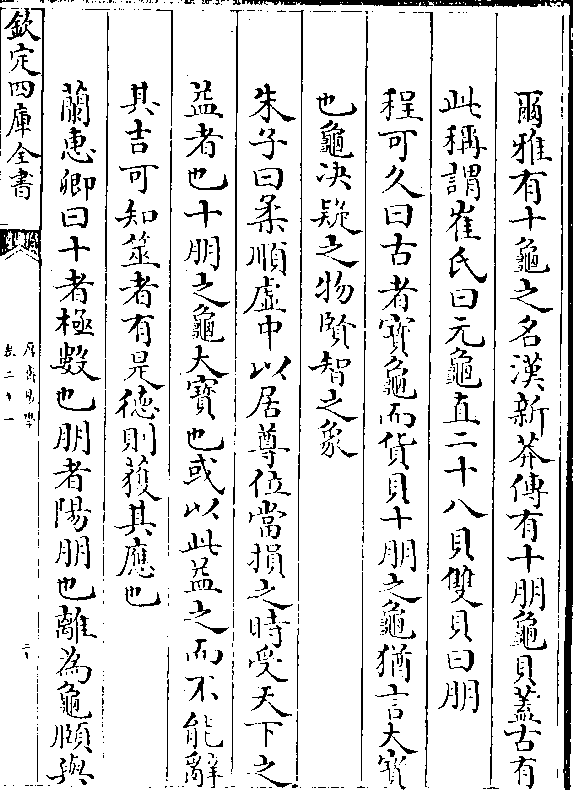 爾雅有十龜之名漢新莽傳有十朋龜貝蓋古有
此稱謂崔氏曰元龜直二十八貝雙貝曰朋
程可久曰古者寳龜而貨貝十朋之龜猶言大寳
也龜决疑之物賢智之象
朱子曰柔順虛中以居尊位當損之時受天下之
益者也十朋之龜大寶也或以此益之而不能辭
其吉可知筮者有是德則獲其應也
蘭惠卿曰十者極數也朋者陽朋也離為龜頤與
欽定四庫全書
厚齋易學
卷二十一